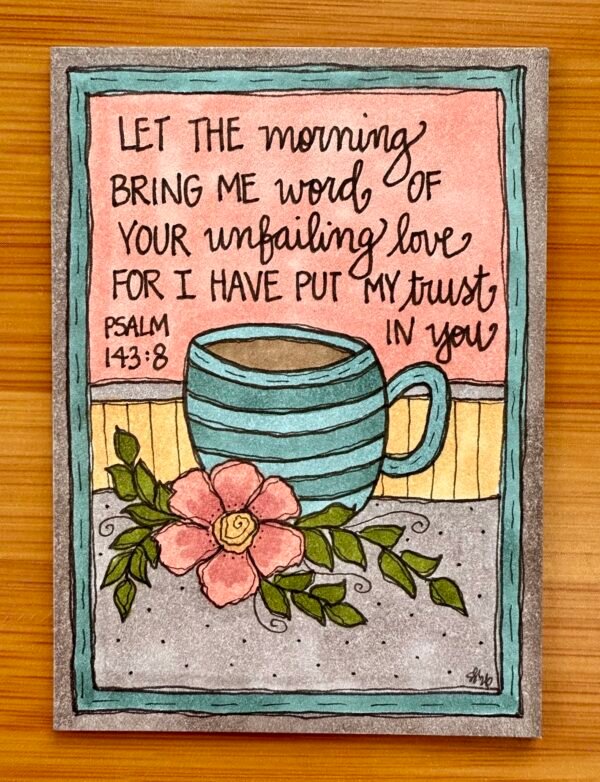 LET THE morning
BRING ME word OF
YOUR unfailing love
FOR I HAVE PUT MY trust
IN you
PSALM
143:8